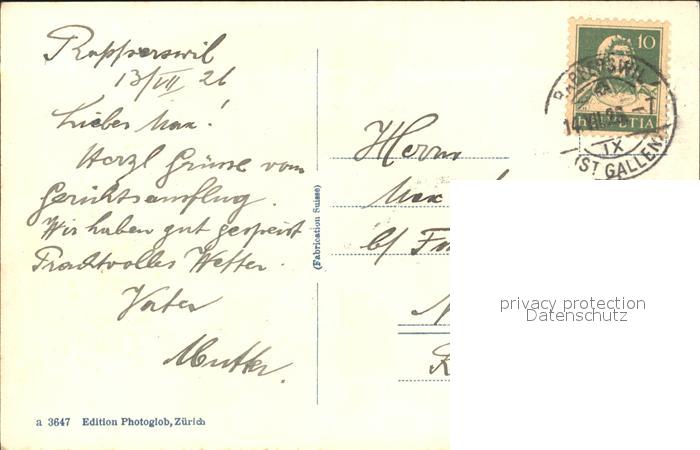 Rapperswil
13/VII 26
Lieber Max!
Herzl Grüsse vom
Gerichtsausflug.
Wir haben gut gespeist
Prachtvolles Wetter.
Vater
Mutter.
a 3647 Edition Photoglob, Zürich
(Fabrication Suisse)
10
HELVETIA
RAPPERSWIL
(ST GALLEN)
IX
Herrn
Max
b/
privacy protection
Datenschutz